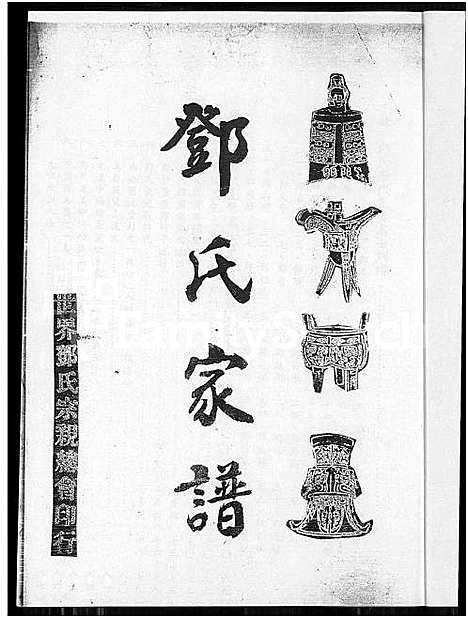 鄧氏家譜
世界鄧氏宗親總會印行
FamilySearch